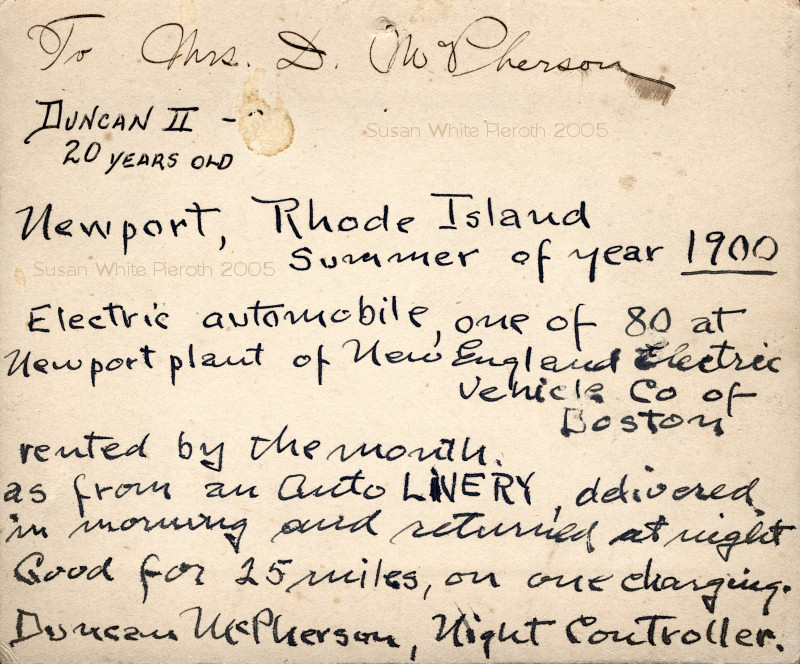 To Mrs. D. McPherson
DUNCAN II -
20 YEARS OLD
Susan White Pieroth 2005
Newport, Rhode Island
Summer of year 1900
Susan White Pieroth 2005
Electric automobile, one of 80 at
Newport plant of New England Electric
Vehicle Co of
Boston
rented by the month.
as from an auto LIVERY, delivered
in morning and returned at night
Good for 25 miles, on one charging.
Duncan McPherson, Night Controller.